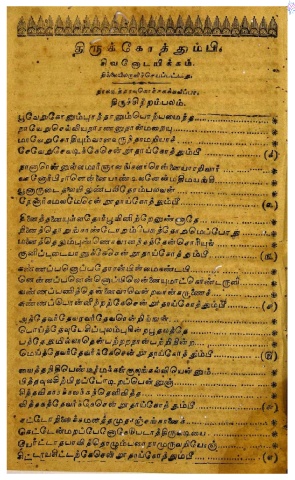 திருக்கோத்தும்பி.
சிவனோடைக்கியம்.
தில்லையிலருளிச்செய்யப்பட்டது
திருச்சிற்றம்பலம்.
பூவேறுகோனும்புரந்தரனும்பொற்பமைந்த
நாவேறுசெல்வியுநாரணனுநான்மறையு
மாவேறுசோதியும்வானவருந்தாமறியாச்
சேவேறுசேவடிக்கேசென்றூதாய்கோத்தும்பீ (க)
நானாரென்னுள்ளமார்ஞானங்களாரென்னையாரறிவார்
வானோர்பிரானென்னையாண்டிலனேன்மதிமயங்கி
யூனாருடைதலையிலுண்பலிதேரம்பலவன்
தேனார்கமலமேசென்றூதாய்கோத்தும்பீ (உ)
தினைத்தனையுள்ளதோர்பூவினிற்றேனுண்ணாதே
நினைத்தொறுங்காண்டொறும்பேசுந்தொறுமெப்போது
மனைத்தெலும்புண்ணெகவானந்தத்தேன்சொரியுங்
குனிப்புடையானுக்கேசென்றூதாய்கோத்தும்பீ (ங)
கண்ணப்பனொப்பதோரன்பின்மைகண்டபி
னென்னப்பனென்னொப்பிலென்னையுமாட்கொண்டருளி
வண்ணப்பணித்தென்னைவாவென்றவான்கருணைச்
சுண்ணப்பொன்னீற்றற்கேசென்றூதாய்கோத்தும்பீ (ச)
அத்தேவர்தேவரவர்தேவரென்றிங்ஙன்
பொய்த்தேவுபேசிப்புலம்புகின்றபூதலத்தே
பத்தேதுமில்லாதென்பற்றறநான்பற்றிநின்ற
மெய்த்தேவர்தேவர்க்கேசென்றூதாய்கோத்தும்பீ (ரு)
வைத்தநிதிபெண்டிர்மக்கள்குலங்கல்வியென்னும்
பித்தவுலகிற்பிறப்போடிறப்பென்னுஞ்
சித்தவிகாரக்கலக்கந்தெளிவித்த
வித்தகத்தேவர்க்கேசென்றூதாய்கோத்தும்பீ (சு)
சட்டோநினைக்கமனத்தமுதாஞ்சங்கரனைக்
கெட்டேன்மறப்பேனோகேடுபடாத்திருவடியை
யொட்டாதபாவித்தொழும்பரைநாமுருவறியோஞ்
சிட்டாயசிட்டற்கேசென்றூதாய்கோத்தும்பீ (எ)